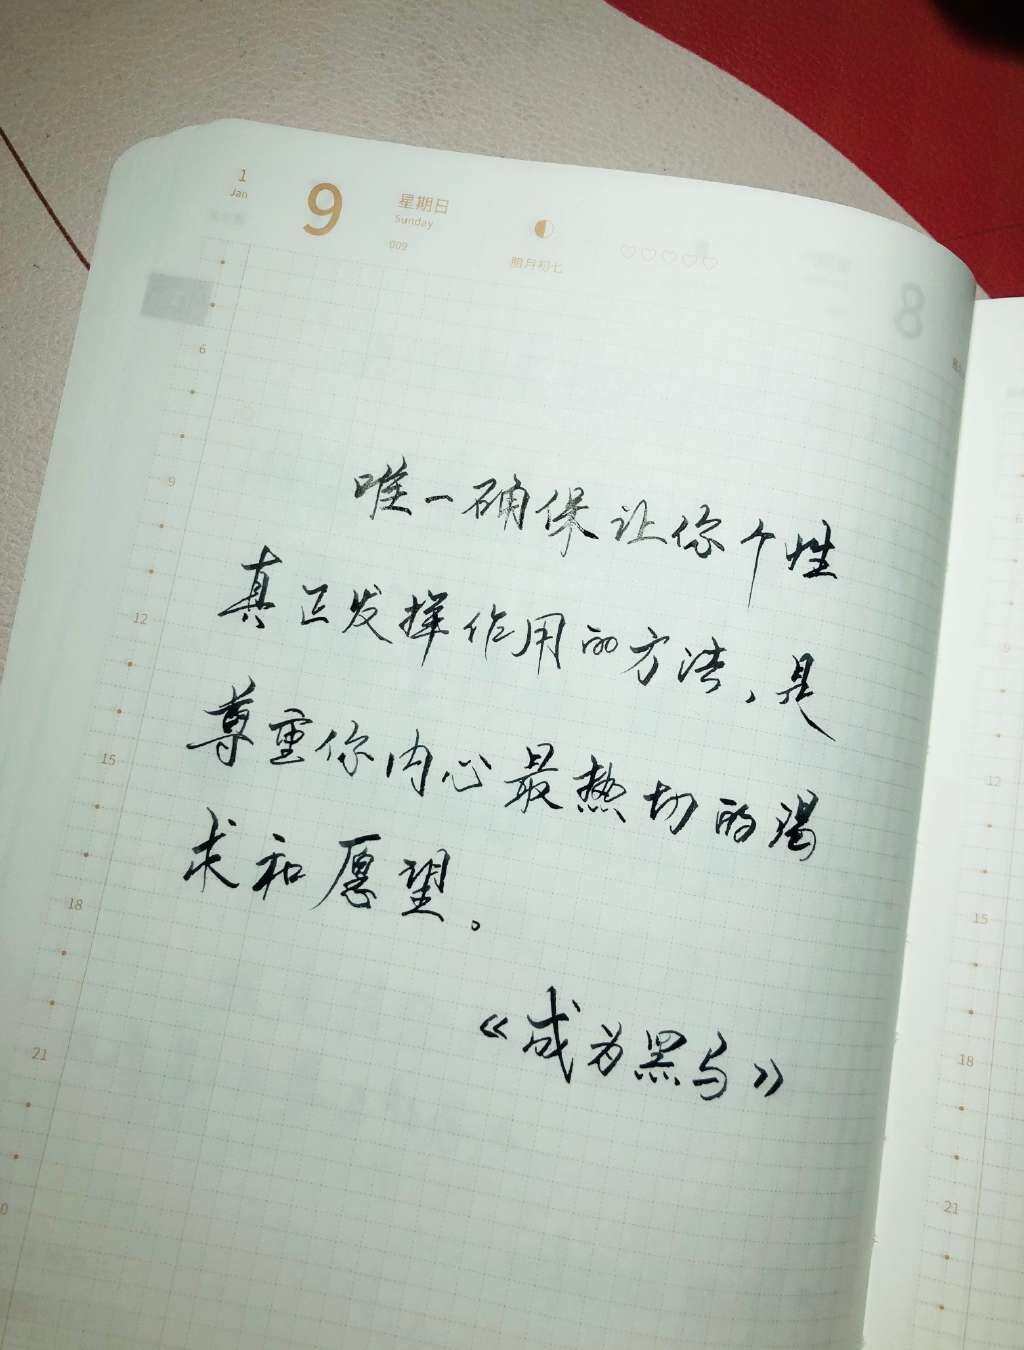 1 9 星期日
Jan Sunday
009 腊月初七
8
6
9
12
15
18
21
唯一确保让你个性
真正发挥作用的方法,是
尊重你内心最热切的渴
求和愿望。
《成为黑马》
9
12
15
18
21